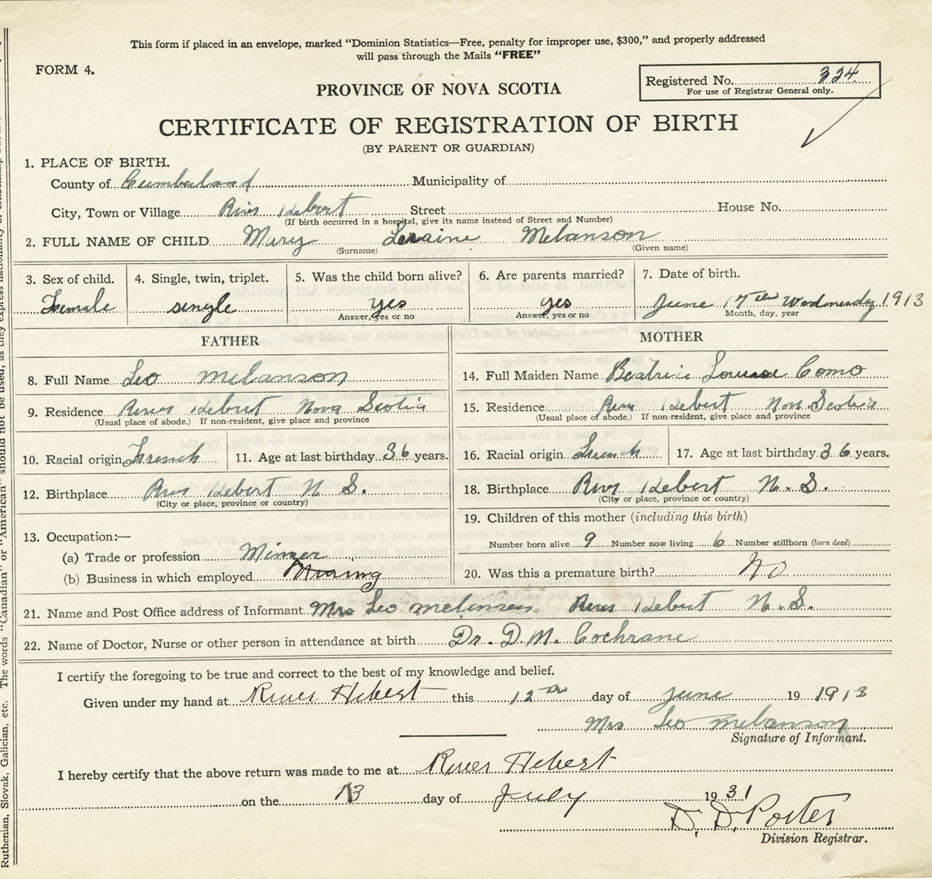 This form if placed in an envelope, marked "Dominion Statistics—Free, penalty for improper use, $300," and properly addressed
will pass through the Mails "FREE"
FORM 4.
Registered No. 324
For use of Registrar General only.
PROVINCE OF NOVA SCOTIA
CERTIFICATE OF REGISTRATION OF BIRTH
(BY PARENT OR GUARDIAN)
1. PLACE OF BIRTH.
County of Cumberland Municipality of
City, Town or Village River Hebert Street House No.
(If birth occurred in a hospital, give its name instead of Street and Number)
2. FULL NAME OF CHILD Mary Loraine Melanson
(Surname) (Given name)
3. Sex of child. 4. Single, twin, triplet. 5. Was the child born alive? 6. Are parents married? 7. Date of birth.
Female single yes yes June 17th Wednesday 1913
Answer, yes or no Answer, yes or no Month, day, year
FATHER MOTHER
8. Full Name Leo Melanson 14. Full Maiden Name Beatrice Louise Como
9. Residence River Hebert Nova Scotia 15. Residence River Hebert Nova Scotia
(Usual place of abode.) If non-resident, give place and province (Usual place of abode.) If non-resident, give place and province
10. Racial origin French 11. Age at last birthday 36 years. 16. Racial origin French 17. Age at last birthday 36 years.
12. Birthplace River Hebert N. S. 18. Birthplace River Hebert N. S.
(City or place, province or country) (City or place, province or country)
13. Occupation:— 19. Children of this mother (including this birth)
(a) Trade or profession Miner Number born alive 9 Number now living 6 Number stillborn (born dead)
(b) Business in which employed Mining 20. Was this a premature birth? No
21. Name and Post Office address of Informant Mrs Leo Melanson River Hebert N. S.
22. Name of Doctor, Nurse or other person in attendance at birth Dr. D. M. Cochrane
I certify the foregoing to be true and correct to the best of my knowledge and belief.
Given under my hand at River Hebert this 12th day of June 19 1913
Mrs Leo Melanson
Signature of Informant.
I hereby certify that the above return was made to me at River Hebert
on the 13 day of July 1931
D. D. Porter
Division Registrar.
Ruthenian, Slovak, Galician, etc. The words "Canadian" or "American" should not be used, as they express nationality